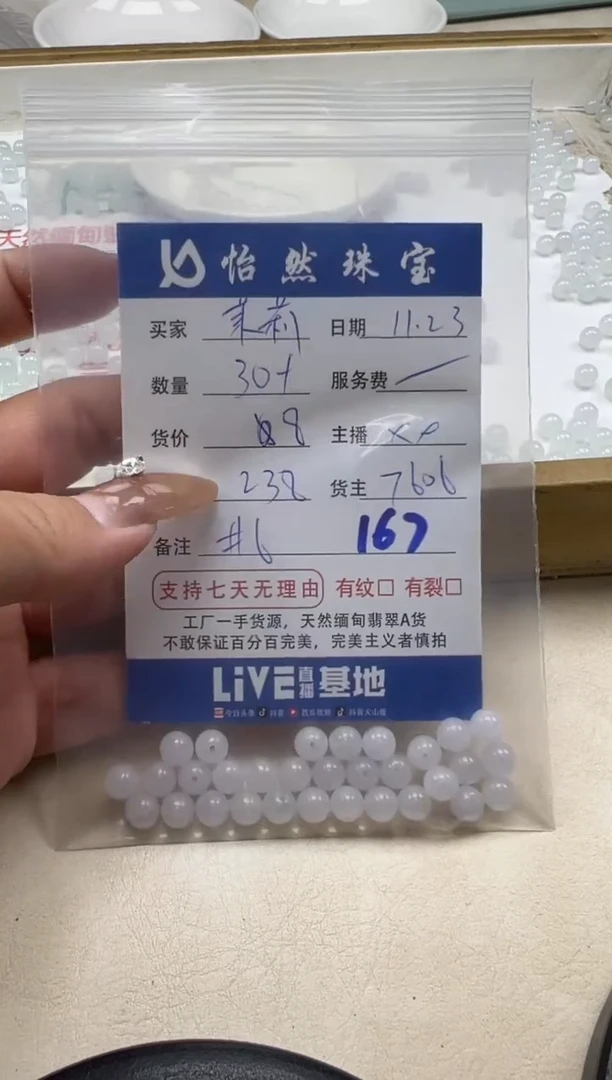 怡然珠宝
买家 茉莉 日期 11.23
数量 30+ 服务费
货价 88 主播 XP
238 货主 7606
备注 #6 167
支持七天无理由 有纹□ 有裂□
工厂一手货源，天然缅甸翡翠A货
不敢保证百分百完美，完美主义者慎拍
LiVE直播基地
今日头条 抖音 西瓜视频 抖音火山版
天然缅甸